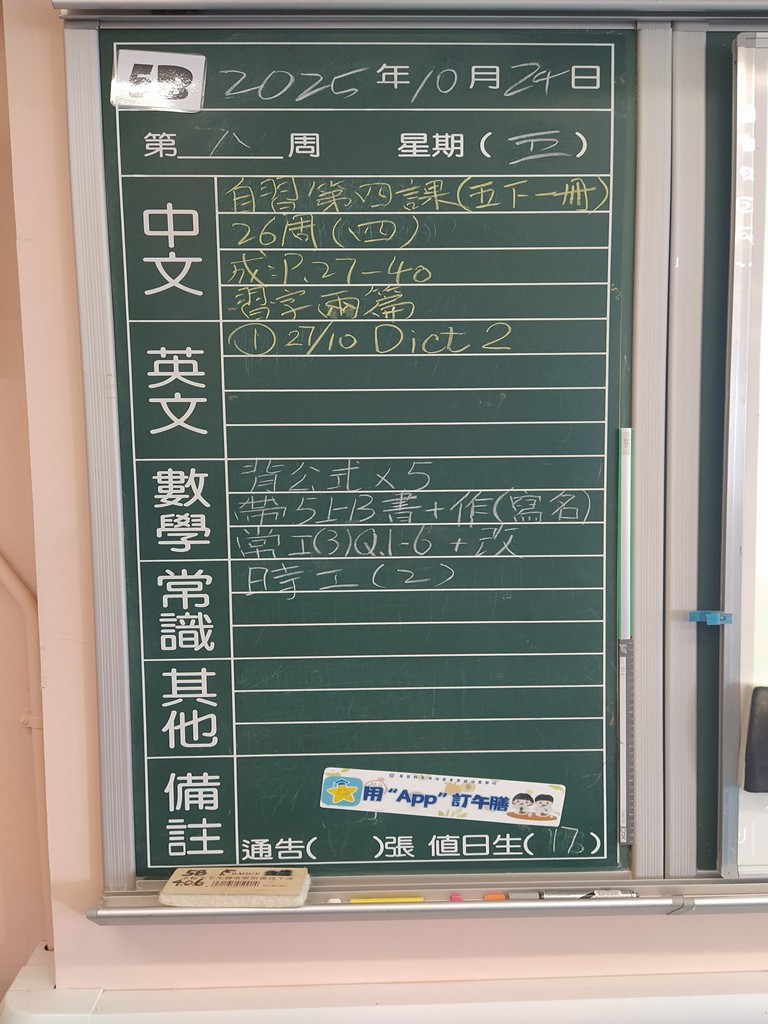 5B 2025年10月24日
第 八 周 星期(五)
中文
自習第四課(五下一冊)
26周(四)
成:P.27-40
習字兩篇
英文
① 27/10 Dict 2
數學
背公式×5
帶5上B書+作(寫名)
常工(3)Q.1-6 +改
常識
時工(2)
其他
備註
用“App”訂午膳
通告( )張 值日生(17)
5B
406